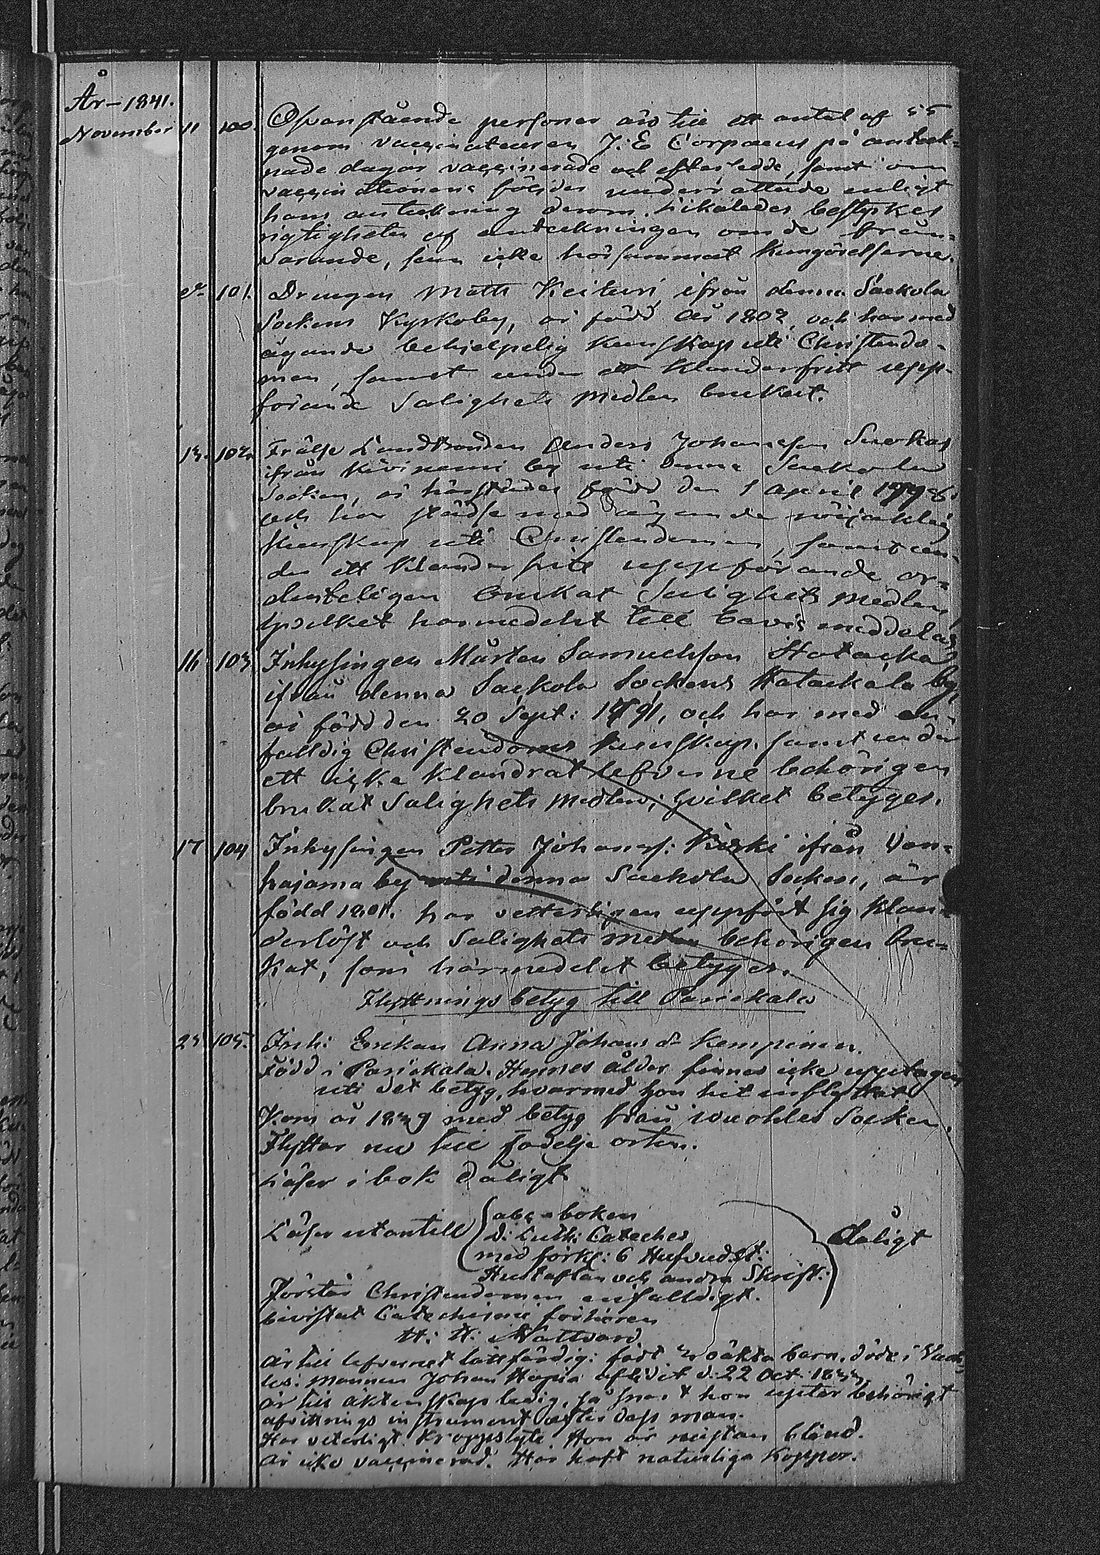 År 1841.
November 11 100. Ofvanstående personer äro till ett antal af 55
genom vaccinateuren J: E Corpaeus på anteck-
nade dagar vaccinerade och efter sedde, samt om
vaccinationens följder underrättade enligt
hans anteckning derom. Likaledes bestyrkes
rigtigheten af anteckningen om de från-
varande, som icke hörsammat Kungörelserne.
101. Drengen Matts ifrån denna Sackola
Sockens Kyrkoby, är född år 1802, och har med
ägande behjelpelig Kunskap uti Christendo-
men, samt under ett Klanderfritt upp-
förande Salighets Medlen brukat.
13. 102. Frälse Landbonden Anders Johansson
ifrån Kivinemi by uti denna Sackola
Socken, är härstädes född den 1 April
och har städse med ägande
Kunskap uti Christendomen, samt un-
der ett Klanderfritt uppförande or-
denteligen brukat Salighets medlen,
hvilket härmedelst till bevis meddelas
16 103 Inhysingen Mårten Samuelsson Hatacka
ifrån denna Sackola Sockens Hatackala by
är född den 20 Sept: 1791, och har med en-
falldig Christendoms Kunskap samt under
ett icke klandrat lefverne behörigen
brukat Salighets medlen; hvilket betyges.
17 104 Inhysingen Petter Johanss: Kiski ifrån Von-
hajama by uti denna Sackola Socken, är
född 1801. har vetterligen uppfört sig Klan-
derlöst och Salighets medlen behörigen bru-
kat, som härmedelst betyges.
Flyttnings betyg till Parickala
23 105. Inh: Enkan Anna Johans dr Kempinen.
Född i Parickala. Hennes ålder finnes icke upptagen
uti det betyg, hvarmed hon hit inflyttat
Kom år 1829 med betyg från Socken.
Flyttar nu till födelse orten.
Läser i bok dåligt
Läser utantill abc-boken
D: Luth: Cateches
med förkl: 6 Hufvudst:
Hustaflan och andra Skrift:
dåligt
Förstår Christendomen enfalldigt.
bevistat Catechismi förhören
H: H: Nattvard
Är till lefvernet lättfärdig: födt 2 oäkta barn.
Mannen Johan Hopia afledit d: 22 Oct.
Är till äktenskap ledig, så snart hon upter behörigt
afvittrings instrument efter dess man.
Har veterligt Kroppslyte Hon är nästan blind.
Är icke vaccinerad. Har haft naturliga Koppor.